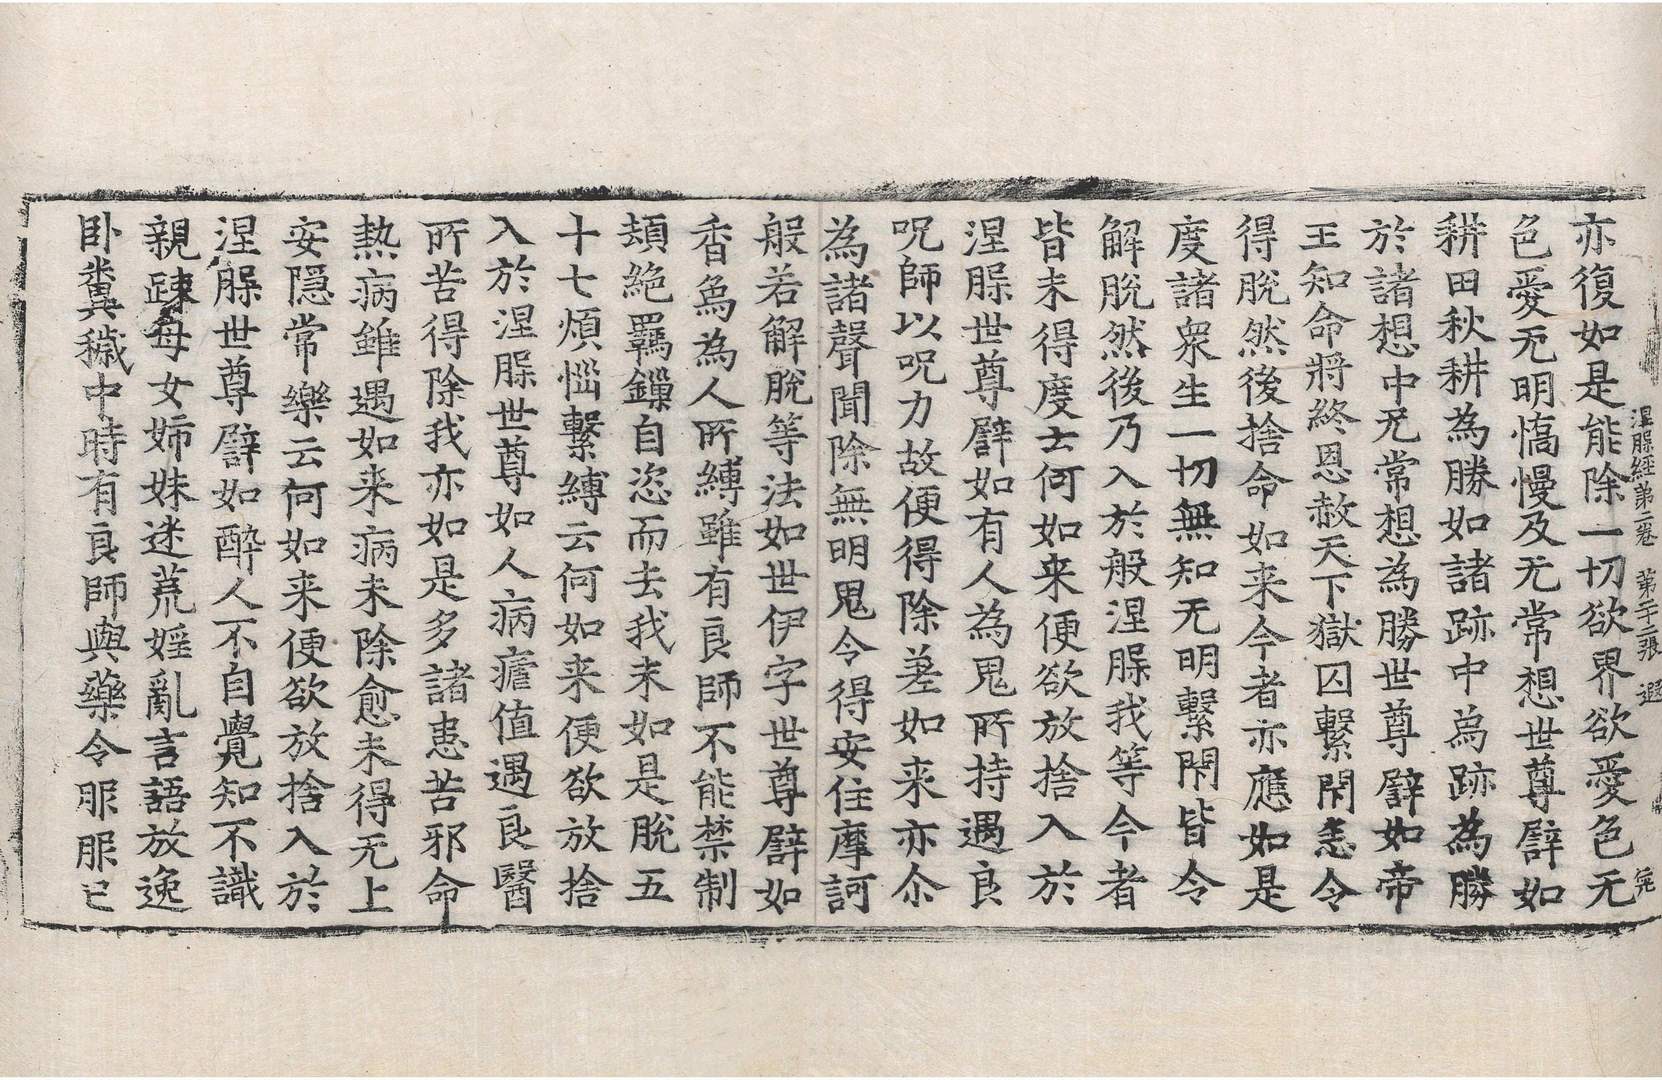 涅槃經第二卷 第二十二張 遐
亦復如是能除一切欲界欲愛色无
色愛无明憍慢及无常想世尊譬如
耕田秋耕為勝如諸跡中為跡為勝
於諸想中无常想為勝世尊譬如帝
王知命將終恩赦天下獄囚繫閇悉令
得脫然後捨命如来今者亦應如是
度諸衆生一切無知无明繫閇皆令
解脫然後乃入於般涅槃我等今者
皆未得度云何如来便欲放捨入於
涅槃世尊譬如有人為鬼所持遇良
呪師以呪力故便得除差如来亦尒
為諸聲聞除無明鬼令得安住摩訶
般若解脫等法如世伊字世尊譬如
香象為人所縛雖有良師不能禁制
頓絶羈鏁自恣而去我未如是脫五
十七煩惱繫縛云何如来便欲放捨
入於涅槃世尊如人病瘧值遇良醫
所苦得除我亦如是多諸患苦邪命
熱病雖遇如来病未除愈未得无上
安隱常樂云何如来便欲放捨入於
涅槃世尊譬如醉人不自覺知不識
親踈母女姉妹迷荒婬亂言語放逸
卧糞穢中時有良師與藥令服服已